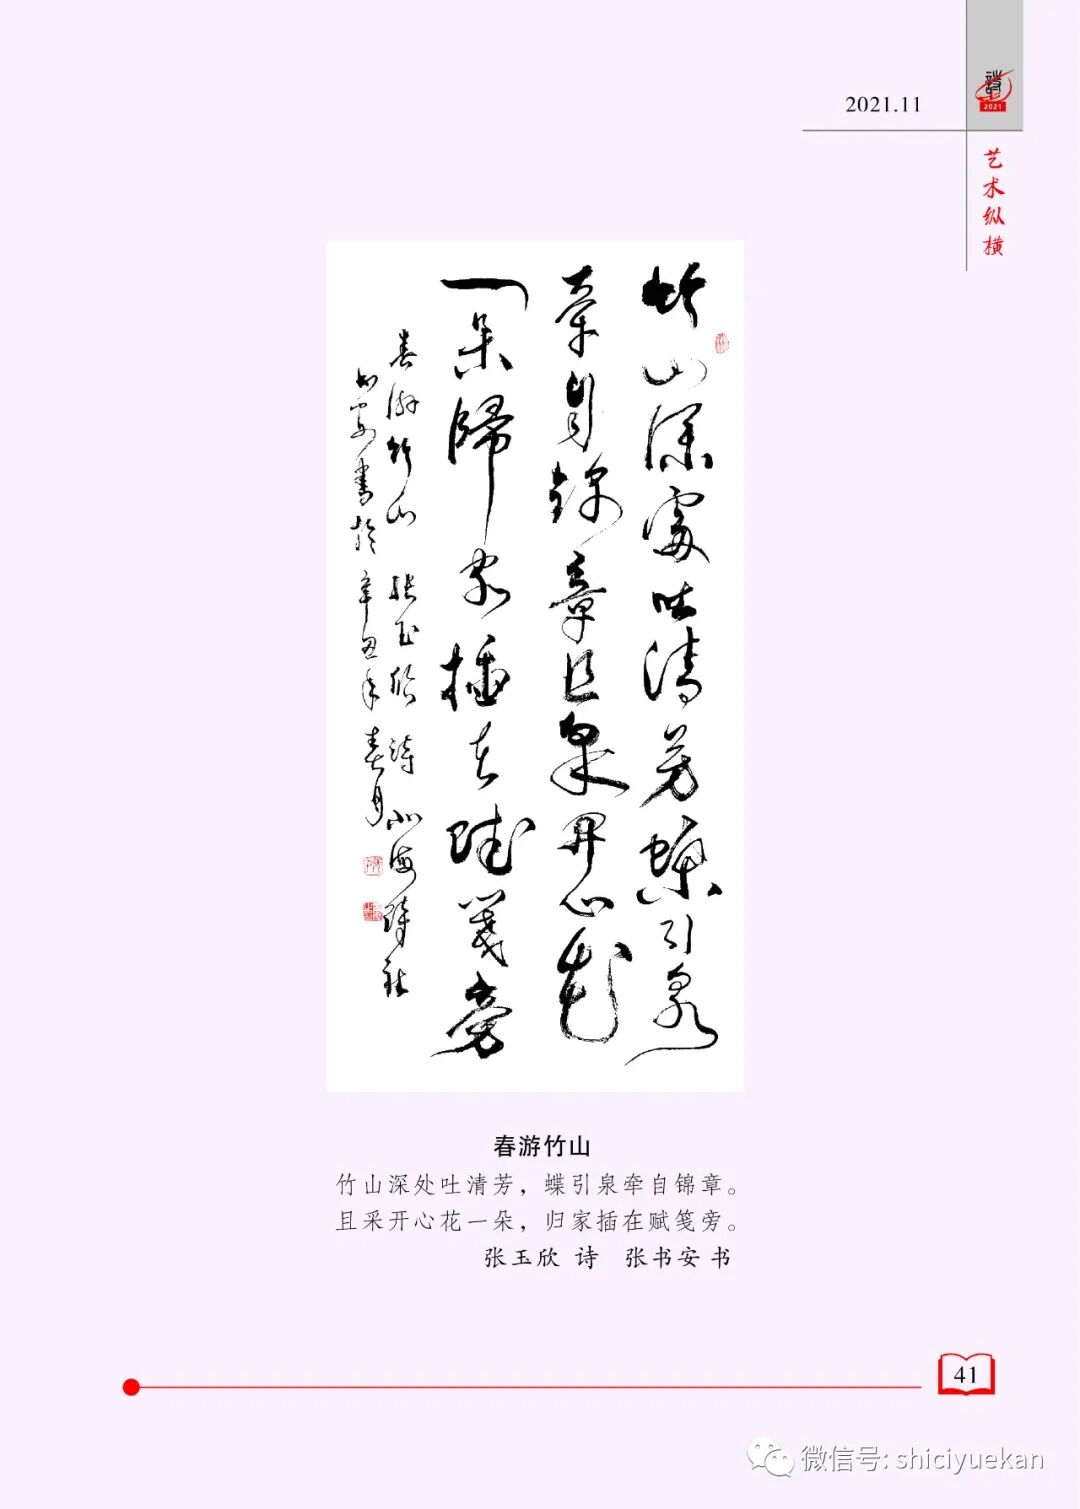 2021.11
2021
艺术纵横
竹山深處吐清芳蝶引泉
牽自錦章且采開心花
一朵歸家插在賦箋旁
春游竹山 张玉欣 诗 北海诗社
书安书於辛丑年春月
春游竹山
竹山深处吐清芳，蝶引泉牵自锦章。
且采开心花一朵，归家插在赋笺旁。
张玉欣 诗 张书安 书
41
微信号: shiciyuekan